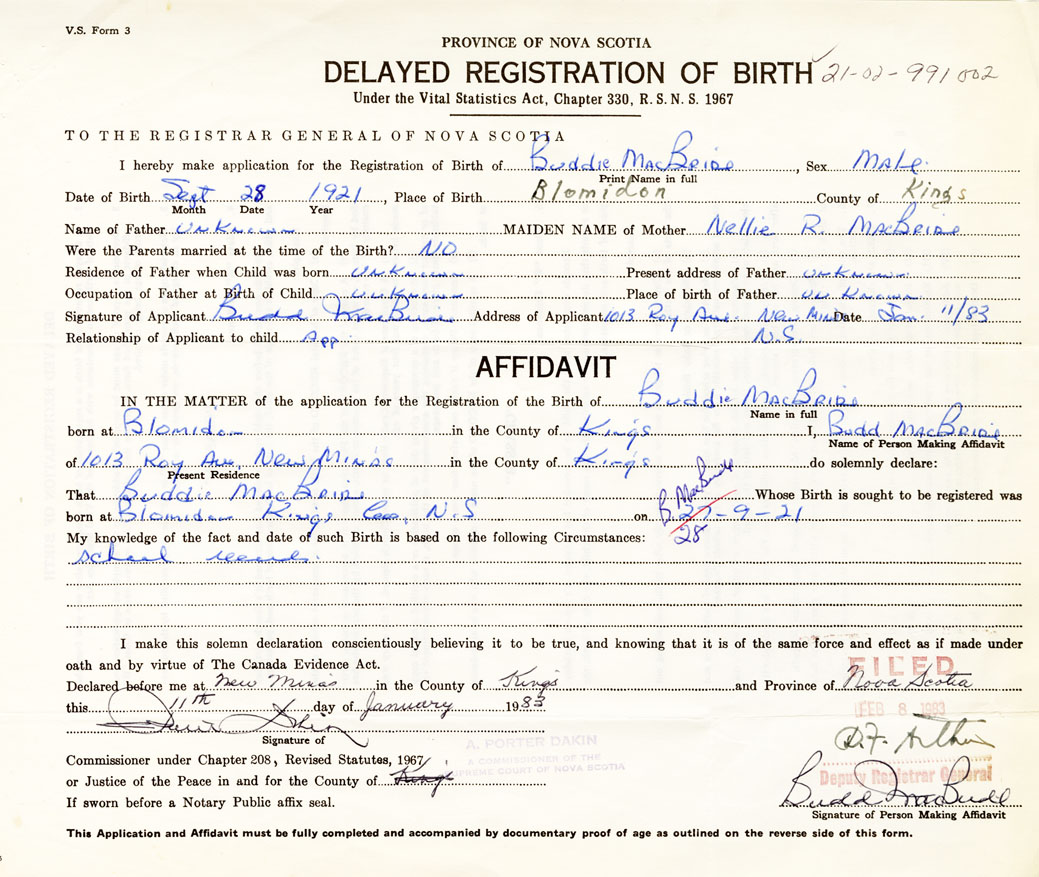 V.S. Form 3
PROVINCE OF NOVA SCOTIA
DELAYED REGISTRATION OF BIRTH 21-02-991002
Under the Vital Statistics Act, Chapter 330, R.S.N.S. 1967
TO THE REGISTRAR GENERAL OF NOVA SCOTIA
I hereby make application for the Registration of Birth of Buddie MacBride, Sex Male
Print Name in full
Date of Birth Sept 28 1921, Place of Birth Blomidon County of Kings
Month Date Year
Name of Father Unknown MAIDEN NAME of Mother Nellie R. MacBride
Were the Parents married at the time of the Birth? NO
Residence of Father when Child was born Unknown Present address of Father Unknown
Occupation of Father at Birth of Child Unknown Place of birth of Father Unknown
Signature of Applicant Budd MacBride Address of Applicant 1013 Roy Ave. New Min Date Jan. 11/83
Relationship of Applicant to child App N.S.
AFFIDAVIT
IN THE MATTER of the application for the Registration of the Birth of Buddie MacBride
Name in full
born at Blomidon in the County of Kings I, Budd MacBride
Name of Person Making Affidavit
of 1013 Roy Av, New Minas in the County of Kings do solemnly declare:
Present Residence
That Buddie MacBride B. MacBride Whose Birth is sought to be registered was
born at Blomidon Kings Co, N.S on 27-9-21
28
My knowledge of the fact and date of such Birth is based on the following Circumstances:
school records.
I make this solemn declaration conscientiously believing it to be true, and knowing that it is of the same force and effect as if made under
oath and by virtue of The Canada Evidence Act.
FILED
Declared before me at New Minas in the County of Kings and Province of Nova Scotia
this 11th day of January 1983
FEB 8 1983
Signature of
A. PORTER DAKIN
A COMMISSIONER OF THE
SUPREME COURT OF NOVA SCOTIA
Commissioner under Chapter 208, Revised Statutes, 1967
or Justice of the Peace in and for the County of Kings
Deputy Registrar General
If sworn before a Notary Public affix seal.
Budd MacBride
Signature of Person Making Affidavit
This Application and Affidavit must be fully completed and accompanied by documentary proof of age as outlined on the reverse side of this form.